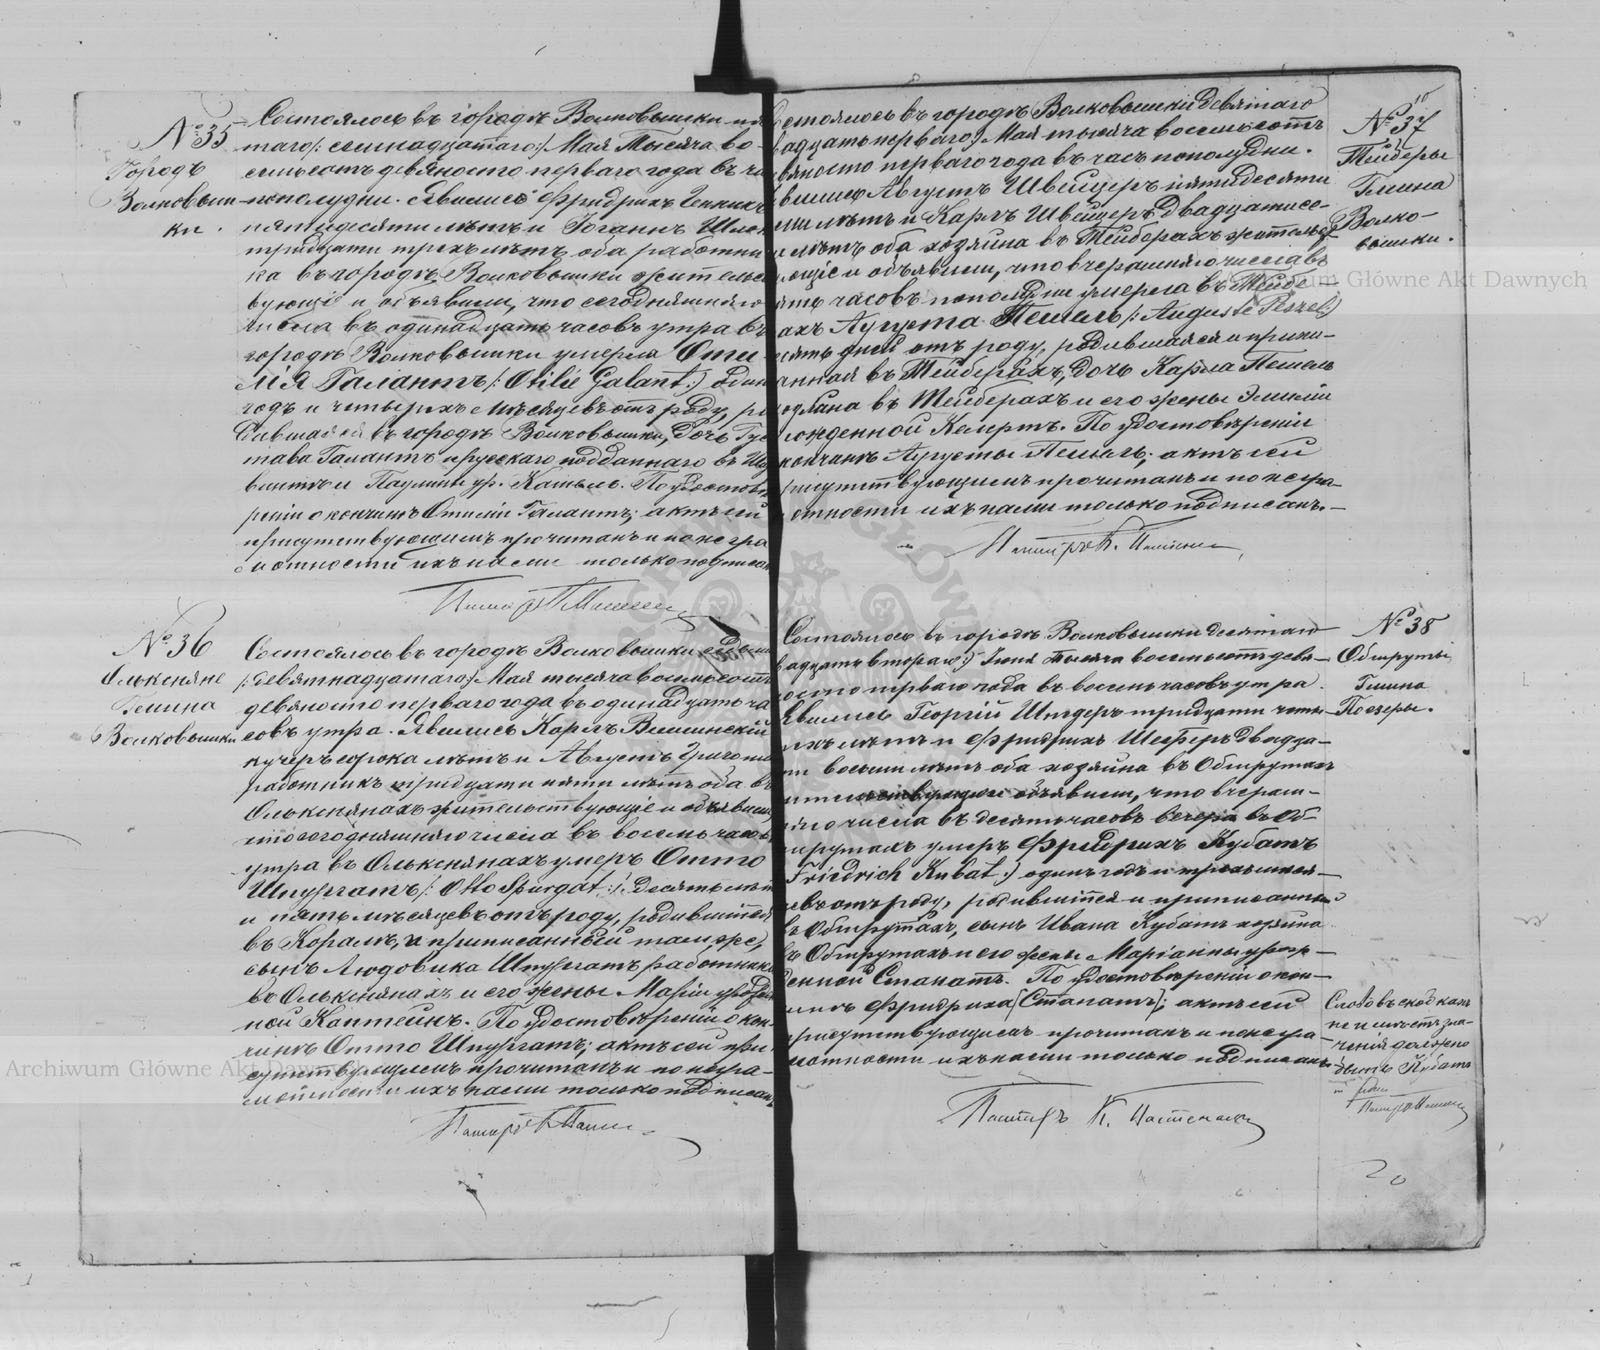 № 35
Городъ
Волковыш-
ки.
Состоялось въ городѣ Волковышки пя
таго /: семнадцатаго :/ Мая тысяча во-
семьсотъ девяносто перваго года въ ча
пополудни. Явились Фридрихъ
пятидесяти лѣтъ и Іоганъ
тридцати трехъ лѣтъ, оба работни
ка въ городѣ Волковышки жительс
вующіе и объявили, что сегодняшняго
числа въ одинадцать часовъ утра въ
городѣ Волковышки умерла Оти-
лія Галантъ /: Otilie Galant :/ один
годъ и четырехъ мѣсяцевъ отъ роду, ро
дившаяся въ городѣ Волковышки, дочь Гус
тава Галантъ прусскаго подданнаго въ
и Паулины ур. По удостовѣ
реніи о кончинѣ Отиліи Галантъ; актъ сей
присутствующимъ прочитанъ и по негра
мотности ихъ нами только подписан
Пастиръ К.
№ 36
Олькеняне
Гмина
Волковышки
Состоялось въ городѣ Волковышки седьма
/: девятнадцатаго :/ Мая тысяча восемьсотъ
девяносто перваго года въ одинадцать ча
совъ утра. Явились Карлъ Вишинскій
кучеръ сорока лѣтъ и Августъ
работникъ тридцати пяти лѣтъ оба въ
Олькенянахъ жительствующіе и объявили
что сегодняшняго числа въ восемь часовъ
утра въ Олькенянахъ умеръ Отто
Шпургатъ /: Otto Spurgat :/ десять лѣтъ
и пять мѣсяцевъ отъ роду, родившійся
въ и приписанный тамже,
сынъ Людовика Шпургатъ работника
въ Олькенянахъ и его жены Маріи урожд
ной Каптейнъ. По удостовѣреніи о кон-
чинѣ Отто Шпургатъ; актъ сей при
сутствующимъ прочитанъ и по негра-
мотности ихъ нами только подписан
Пастиръ К.
Состоялось въ городѣ Волковышки девятаго
вадцать перваго :/ Мая тысяча восемьсотъ
вяносто перваго года въ часъ пополудни.
вились Августъ Швейцеръ пятидесяти
ми лѣтъ и Карлъ Швейцеръ двадцати се-
и лѣтъ оба хозяина въ Тейберахъ жительст
ующіе и объявили, что вчерашняго числа въ
ять часовъ пополудни умерла въ Тейбе-
ахъ Аугуста Пешель /: Auguste Peszel :/
сять дней отъ роду, родившаяся и припи-
анная въ Тейберахъ, дочь Карла Пешель
въ Тейберахъ и его жены Эмиліи
рожденной По удостовѣреніи
кончинѣ Аугусты Пешель; актъ сей
рисутствующимъ прочитанъ и по негра-
отности ихъ нами только подписанъ.
Пастиръ К.
№ 37
Тейберы
Гмина
Волко-
вышки.
Состоялось въ городѣ Волковышки десятаго
вадцать втораго :/ Іюня тысяча восемьсотъ девя-
осто перваго года въ восемь часовъ утра.
Явились Георгій Штедеръ тридцати четы-
ихъ лѣтъ и Фридрихъ Шеферъ двадца-
ти восьми лѣтъ оба хозяина въ Обшрутахъ
ительствующіе объявили, что вчераш-
няго числа въ десять часовъ вечера въ Об-
шрутахъ умеръ Фридрихъ Кубатъ
Friedrich Kubat :/ одинъ годъ и трехъ мѣся-
цевъ отъ роду, родившійся и приписанный
въ Обшрутахъ, сынъ Ивана Кубатъ хозяина
въ Обшрутахъ и его жены Маріанны урож-
денной Станатъ. По удостовѣреніи о кон-
чинѣ Фридриха (Станатъ); актъ сей
рисутствующимъ прочитанъ и по негра-
мотности ихъ нами только подписанъ
Пастиръ К.
№ 38
Обшруты
Гмина
Поезеры.
Слово въ скобкахъ
не имѣетъ зна-
ченія должно
быть Кубатъ
20
Archiwum Główne Akt Dawnych
Archiwum Główne Akt Dawnych